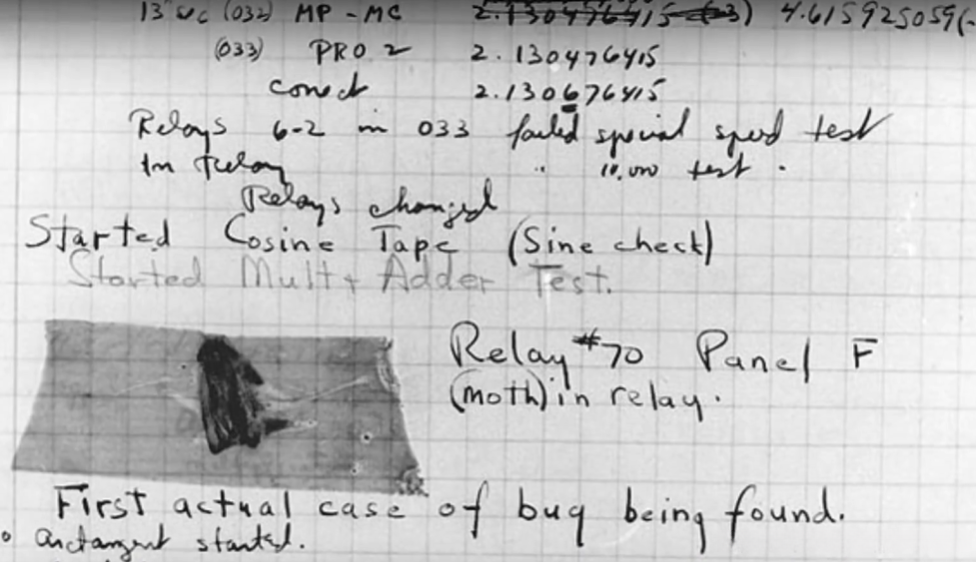 13" sec (032) MP - MC 2.130476415 (-3) 4.615925059(-
(033) PRO 2 2.130476415
conect 2.130676415
Relays 6-2 in 033 failed special speed test
In Relay " 10,000 test .
Relays changed
Started Cosine Tape (Sine check)
Started Mult + Adder Test.
Relay #70 Panel F
(moth) in relay.
First actual case of bug being found.
arctangent started.